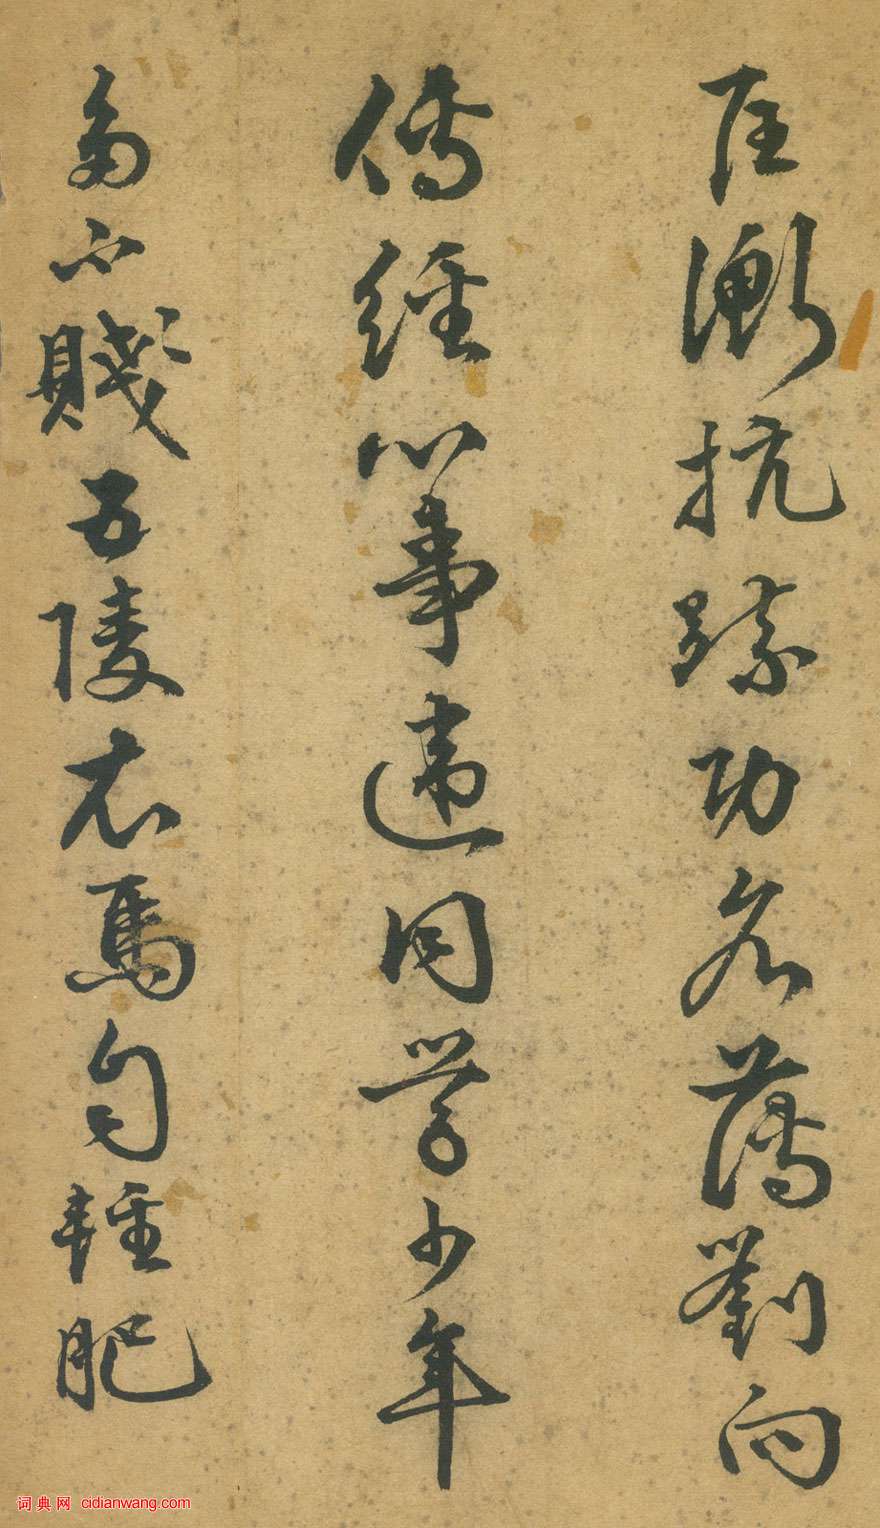 匡衡抗疏功名薄劉向
傳經心事違同學少年
多不賤五陵衣馬自輕肥
词典网 cidianwang.com